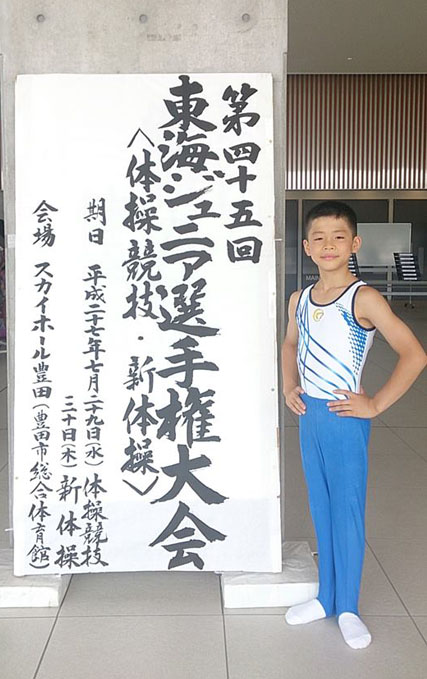 第四十五回
東海ジュニア選手権大会
〈体操競技・新体操〉
期日 平成二十七年七月二十九日(水)体操競技
三十日(木)新体操
会場 スカイホール豊田(豊田市総合体育館)
MAIN